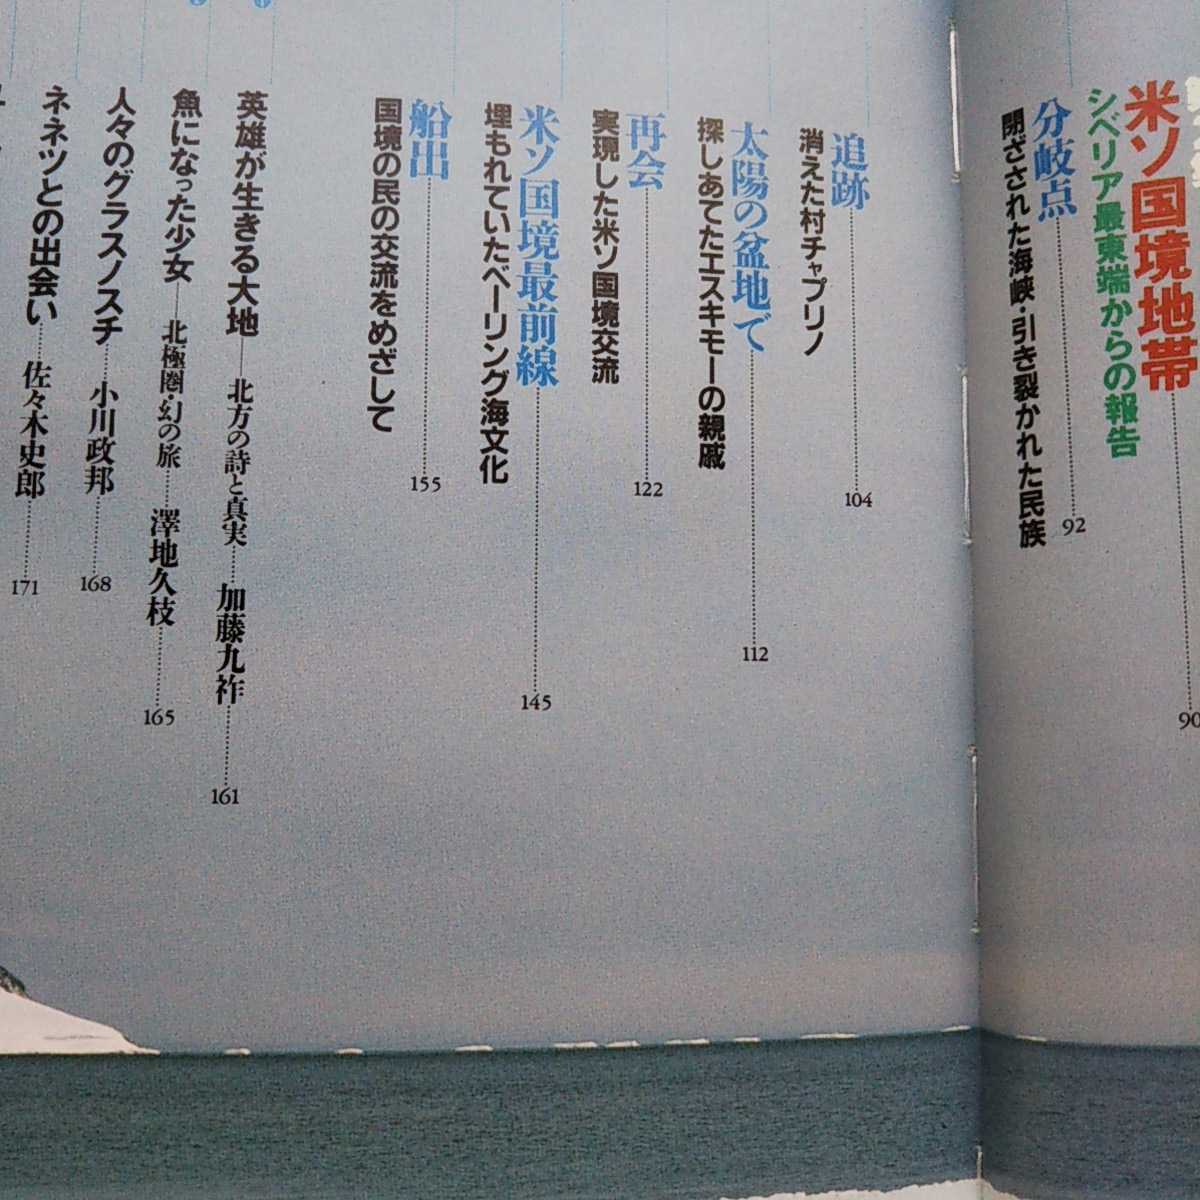 米ソ国境地帯
シベリア最東端からの報告
90
分岐点
92
閉ざされた海峡・引き裂かれた民族
追跡
104
消えた村チャプリノ
太陽の盆地で
112
探しあてたエスキモーの親戚
再会
122
実現した米ソ国境交流
米ソ国境最前線
145
埋もれていたベーリング海文化
船出
155
国境の民の交流をめざして
英雄が生きる大地──北方の詩と真実……加藤九祚……161
魚になった少女──北極圏・幻の旅……澤地久枝……165
人々のグラスノスチ……小川政邦……168
ネネツとの出会い……佐々木史郎……171